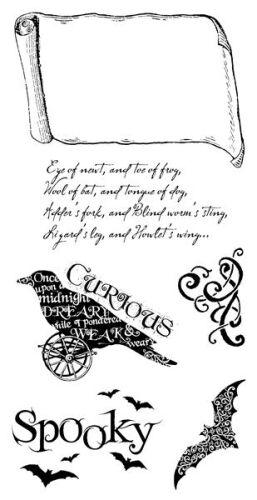 Eye of newt, and toe of frog,
Wool of bat, and tongue of dog,
Adder's fork, and Blind worm's sting,
Lizard's leg, and Howlet's wing...
Curious
Once
upon a
midnight
DREARY,
while I pondered
WEAK &
weary
Spooky